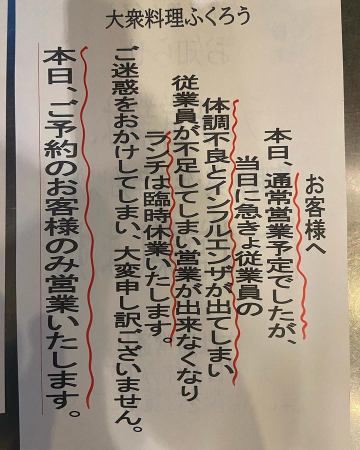 大衆料理ふくろう
お客様へ
本日、通常営業予定でしたが、
当日に急きょ従業員の
体調不良とインフルエンザが出てしまい
従業員が不足してしまい営業が出来なくなり
ランチは臨時休業いたします。
ご迷惑をおかけしてしまい、大変申し訳ございません。
本日、ご予約のお客様のみ営業いたします。